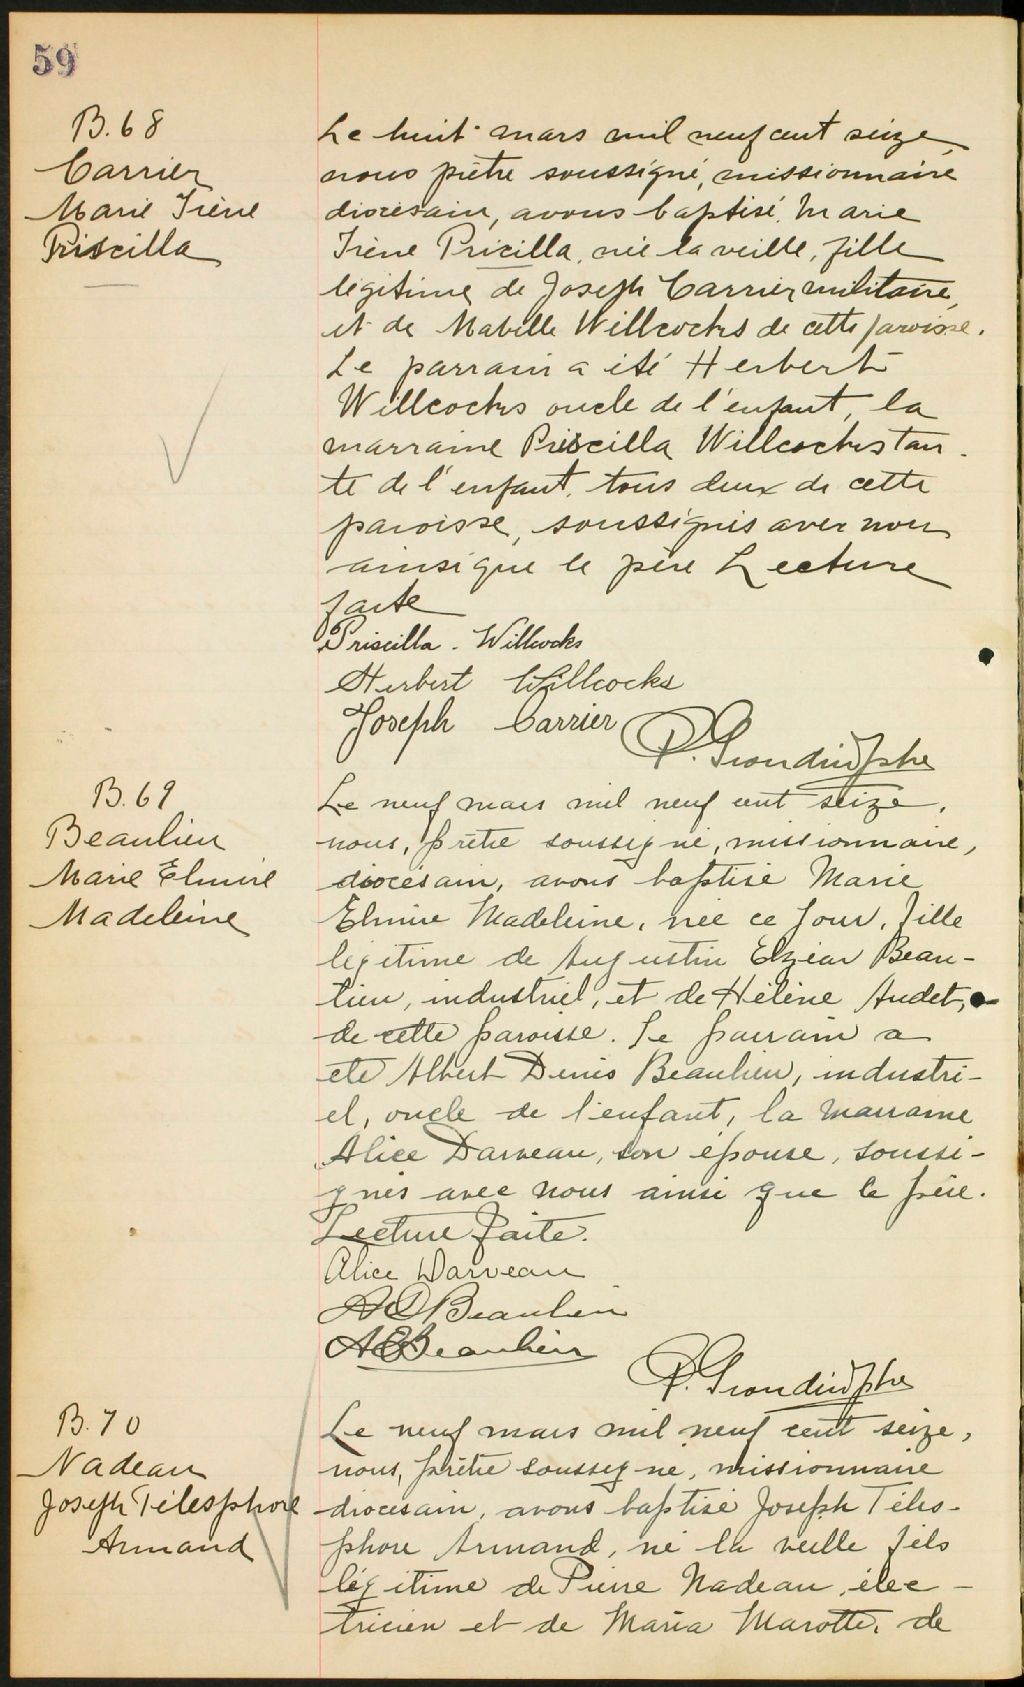 59
B. 68
Carrier
Marie Irène
Priscilla
Le huit mars mil neuf cent seize,
nous prêtre soussigné, missionnaire
diocésain, avons baptisé, Marie
Irène Pricilla, née la veille, fille
légitime de Joseph Carrier militaire,
et de Mabille Willcocks de cette paroisse.
Le parrain a été Herbert
Willcocks oncle de l'enfant, la
marraine Priscilla Willcocks tan-
te de l'enfant, tous deux de cette
paroisse, soussignés avec nous
ainsi que le père Lecture
faite
Priscilla. Willcocks
Herbert Willcocks
Joseph Carrier
P. Grondin Ptre
B. 69
Beaulieu
Marie Elmire
Madeleine
Le neuf mars mil neuf cent seize,
nous, prêtre soussigné, missionnaire,
diocésain, avons baptisé Marie
Elmire Madeleine, née ce jour, fille
légitime de Augustin Elzéar Beau-
lieu, industriel, et de Hélène Audet,
de cette paroisse. Le parrain a
été Albert Denis Beaulieu, industri-
el, oncle de l'enfant, la marraine
Alice Darveau, son épouse, soussi-
gnés avec nous ainsi que le père.
Lecture faite.
Alice Darveau
A D Beaulieu
A E Beaulieu
P. Grondin Ptre
B. 70
Nadeau
Joseph Télesphore
Armand
Le neuf mars mil neuf cent seize,
nous, prêtre soussigné, missionnaire
diocésain, avons baptisé Joseph Téles-
phore Armand, né la veille fils
légitime de Pierre Nadeau, élec-
tricien et de Maria Marotte, de